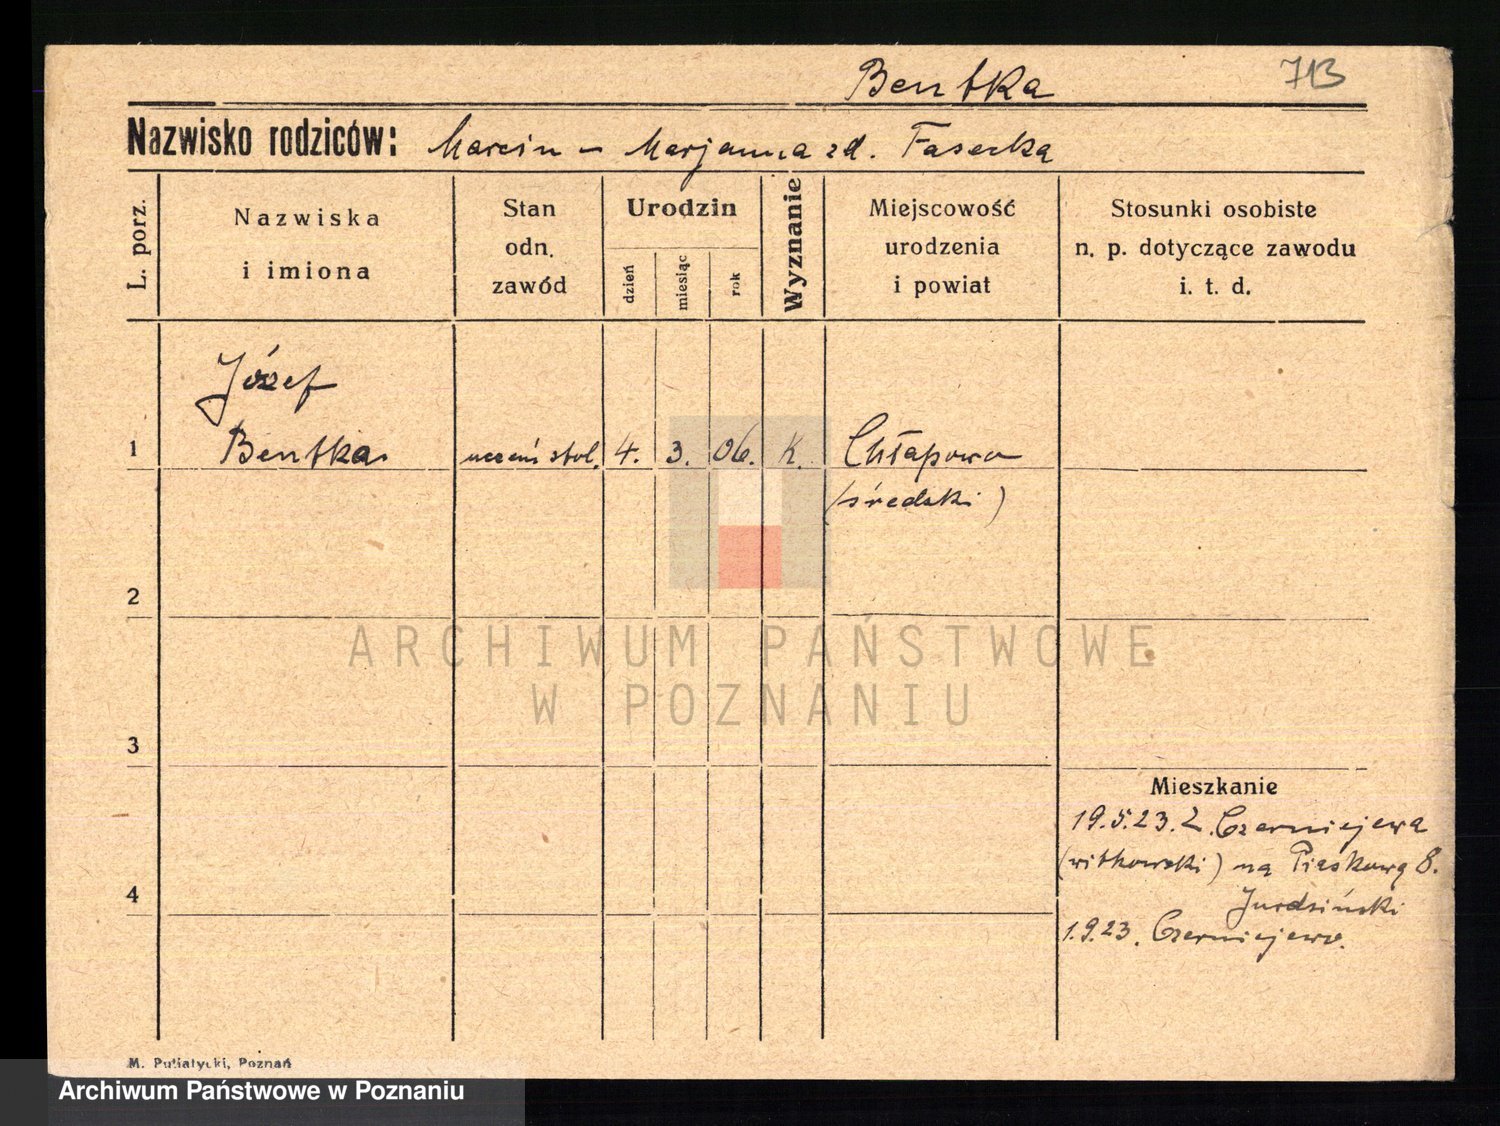 Bentka 713
Nazwisko rodziców: Marcin – Marjanna zd.
L. porz.
Nazwiska
i imiona
Stan
odn.
zawód
Urodzin
dzień miesiąc rok
Wyznanie
Miejscowość
urodzenia
i powiat
Stosunki osobiste
n. p. dotyczące zawodu
i. t. d.
Józef
1 Bentka uczeń stol. 4. 3. 06. K. Chłapowo
(średski)
2
3
4
Mieszkanie
19.5.23. z. Czerniejewa
(witkowski) na Piaskową 8.
Jurdziński
1.9.23. Czerniejewo.
M. Putiatycki, Poznań
ARCHIWUM PAŃSTWOWE
W POZNANIU
Archiwum Państwowe w Poznaniu